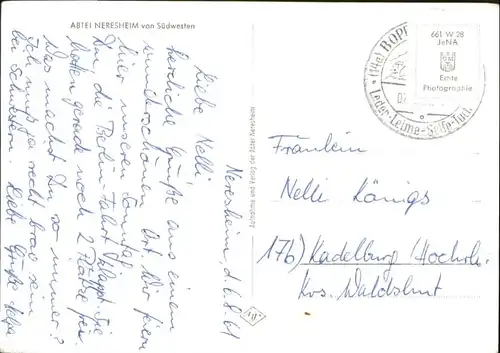 ABTEI NERESHEIM von Südwesten
Neresheim, d. 6.8.61
Liebe Nelli
herzliche Grüße aus einem
wunderschönen Ort. Wir feiern
hier unseren Sonntag.
Du, die Berlin-Fahrt klappt. Sie
hatten gerade noch 2 Plätze frei.
Was machst Du so immer?
Ich muß ja recht brav sein
bei Schwestern. Liebe Grüße
Aufnahme und Verlag der Abtei Neresheim
661 W 28
JeNA
Echte
Photographie
(14a) BOPF
Leder-Leime-Seife-Tuch
Fräulein
Nelli Königs
17b) Kadelburg (Hochrh.
Krs. Waldshut